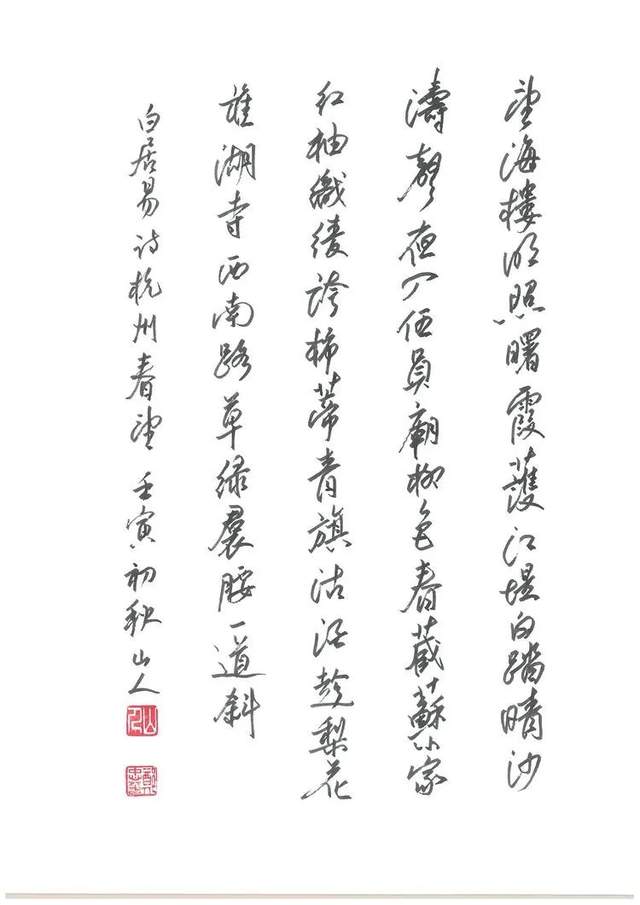 望海樓明照曙霞護江堤白踏晴沙
濤聲夜入伍員廟柳色春藏蘇小家
红袖織綾誇柿蒂青旗沽酒趁梨花
誰湖寺西南路草绿裠腰一道斜
白居易诗杭州春望 壬寅初秋 山人
山人